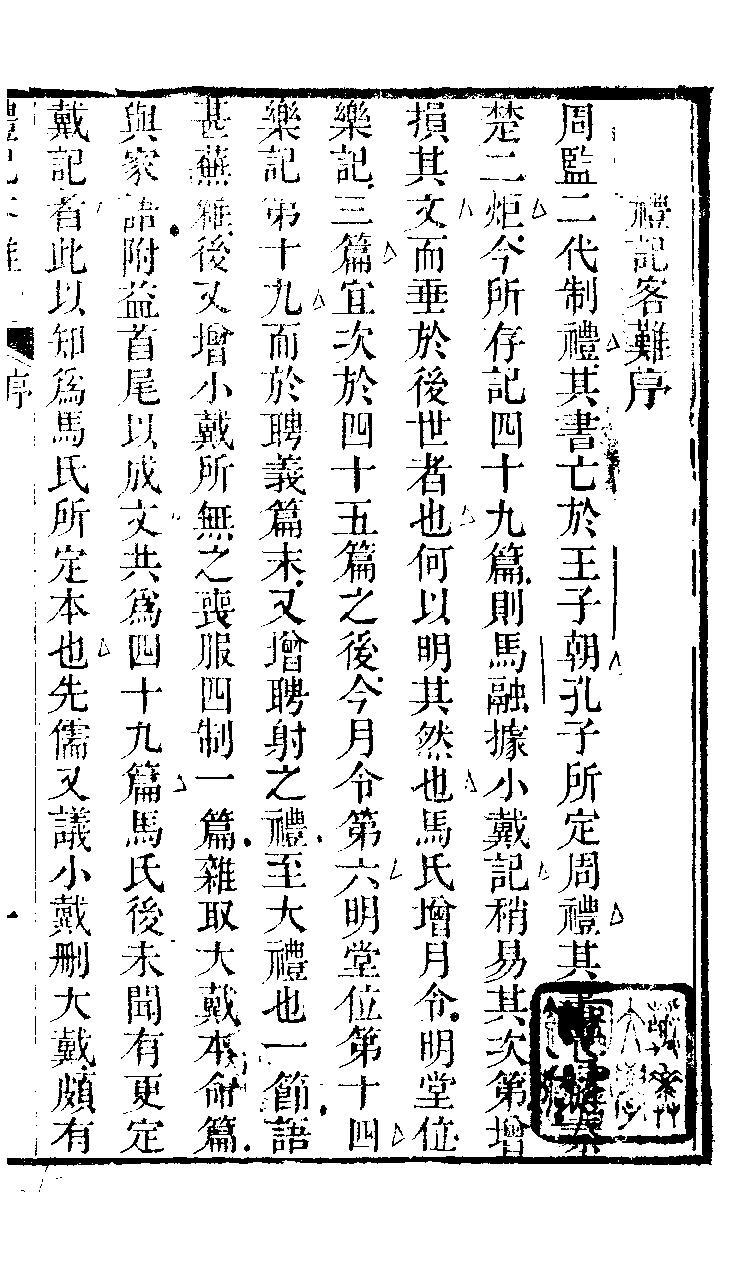 禮記客難序
周監二代制禮其書亡於王子朝孔子所定周禮其書亡於秦
楚二炬今所存記四十九篇則馬融據小戴記稍易其次第增
損其文而垂於後世者也何以明其然也馬氏增月令明堂位
樂記三篇宜次於四十五篇之後今月令第六明堂位第十四
樂記第十九而於聘義篇末又增聘射之禮至大禮也一節語
甚蕪雜後又增小戴所無之喪服四制一篇雜取大戴本命篇
與家語附益首尾以成文共為四十九篇馬氏後未聞有更定
戴記者此以知為馬氏所定本也先儒又議小戴刪大戴頗有
序
一